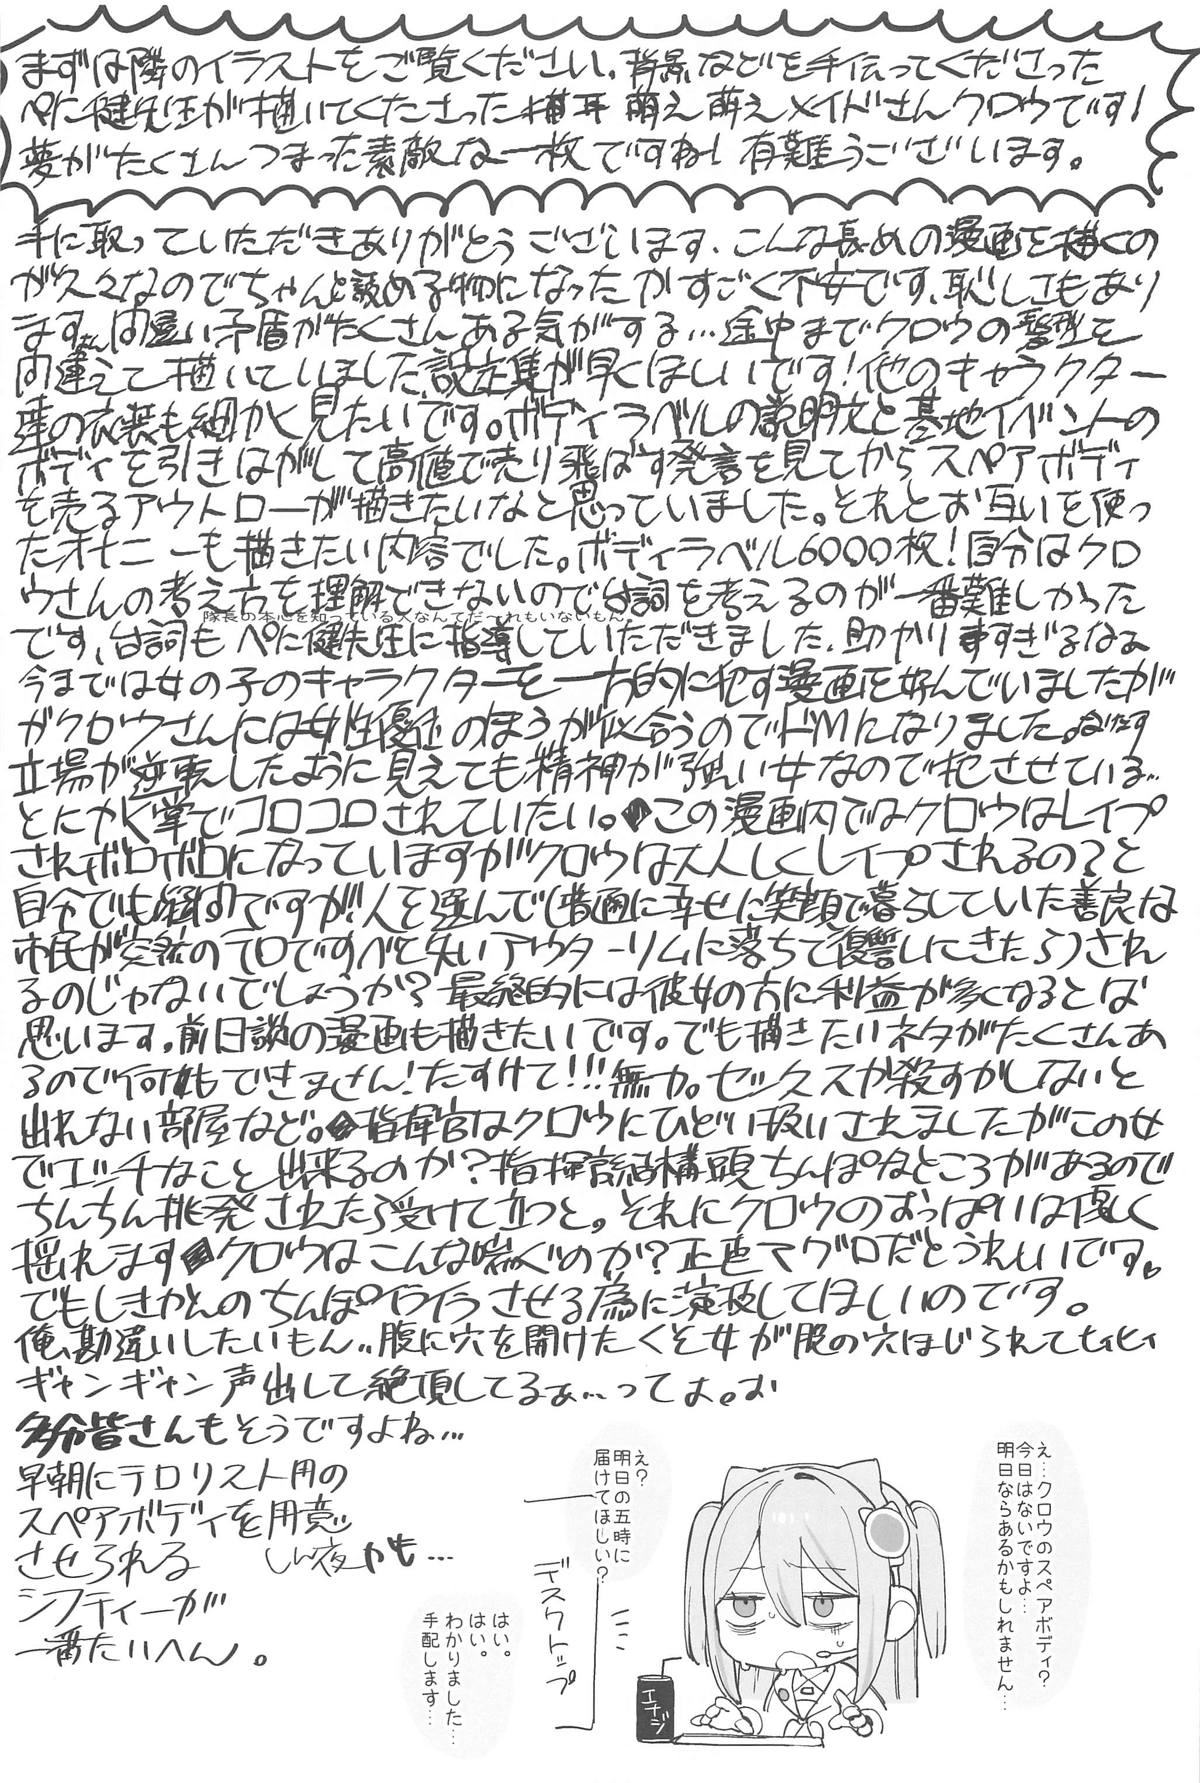 まずは隣のイラストをご覧ください。背景などを手伝ってくださった
ぺに健先生が描いてくださった猫耳萌え萌えメイドさんクロウです!
夢がたくさんつまった素敵な一枚ですね!有難うございます。
手に取っていただきありがとうございます、こんな長めの漫画を描くの
が久々なのでちゃんと読める物になったかすごく不安です、恥しさもあり
ます。間違い矛盾がたくさんある気がする…途中までクロウの髪型を
間違えて描いていました設定集が早くほしいです!他のキャラクター
達の衣装も細かく見たいです。ボディラベルの説明文と基地イベントの
ボディを引きはがして高値で売り飛ばす発言を見てからスペアボディ
を売るアウトローが描きたいなと思っていました。それとお互いを使っ
たオナニーも描きたい内容でした。ボディラベル6000枚!自分はクロ
ウさんの考え方を理解できないので台詞を考えるのが一番難しかった
隊長の本心を知っている人なんてだーれもいないもん。
です、台詞もぺに健先生に指導していただきました、助かりますすぎるなぁ
今までは女の子のキャラクターを一方的に犯す漫画を好んでいましたがが
クロウさんには女性優位のほうが似合うのでドMになりました。
立場が逆転したように見えても精神が強い女なので犯させている…
とにかく掌でコロコロされていたい。この漫画内ではクロウはレイプ
されボロボロになっていますがクロウは大人しくレイプされるの?と
自分でも疑問ですが!人を選んで(普通に幸せに笑顔で暮らしていた善良な
市民が突然のテロですべてを失いアウターリムに落ちて復讐しにきたら)され
るのじゃないでしょうか?最終的には彼女の方に利益が多くなるとは
思います。前日談の漫画も描きたいです。でも描きたいネタがたくさんあ
るので何もできません!たすけて!!!無力。セックスか殺すかしないと
出れない部屋など。指揮官はクロウにひどい扱いされましたがこの女
でエッチなこと出来るのか?指揮官結構頭ちんぽなところがあるので
ちんちん挑発されたら受けて立つと。それにクロウのおっぱいは優しく
揺れますクロウはこんな喘ぐのか?正直マグロだとうれしいです。
でもしきかんのちんぽイライラさせる為に演技してほしいのです。
俺、勘違いしたいもん..腹に穴を開けたくそ女が股の穴ほじられてヒィヒィ
ギャンギャン声出して絶頂してるぁ…ってよ。お
多分皆さんもそうですよね…
早朝にテロリスト用の
スペアボディを用意
させられる しん夜かも…
シフティーが
一番たいへん。
え…クロウのスペアボディ?
今日はないですよ…
明日ならあるかもしれません…
え?
明日の五時に
届けてほしい?
デスクトップ
はい。
はい。
わかりました…
手配します…
エナジ